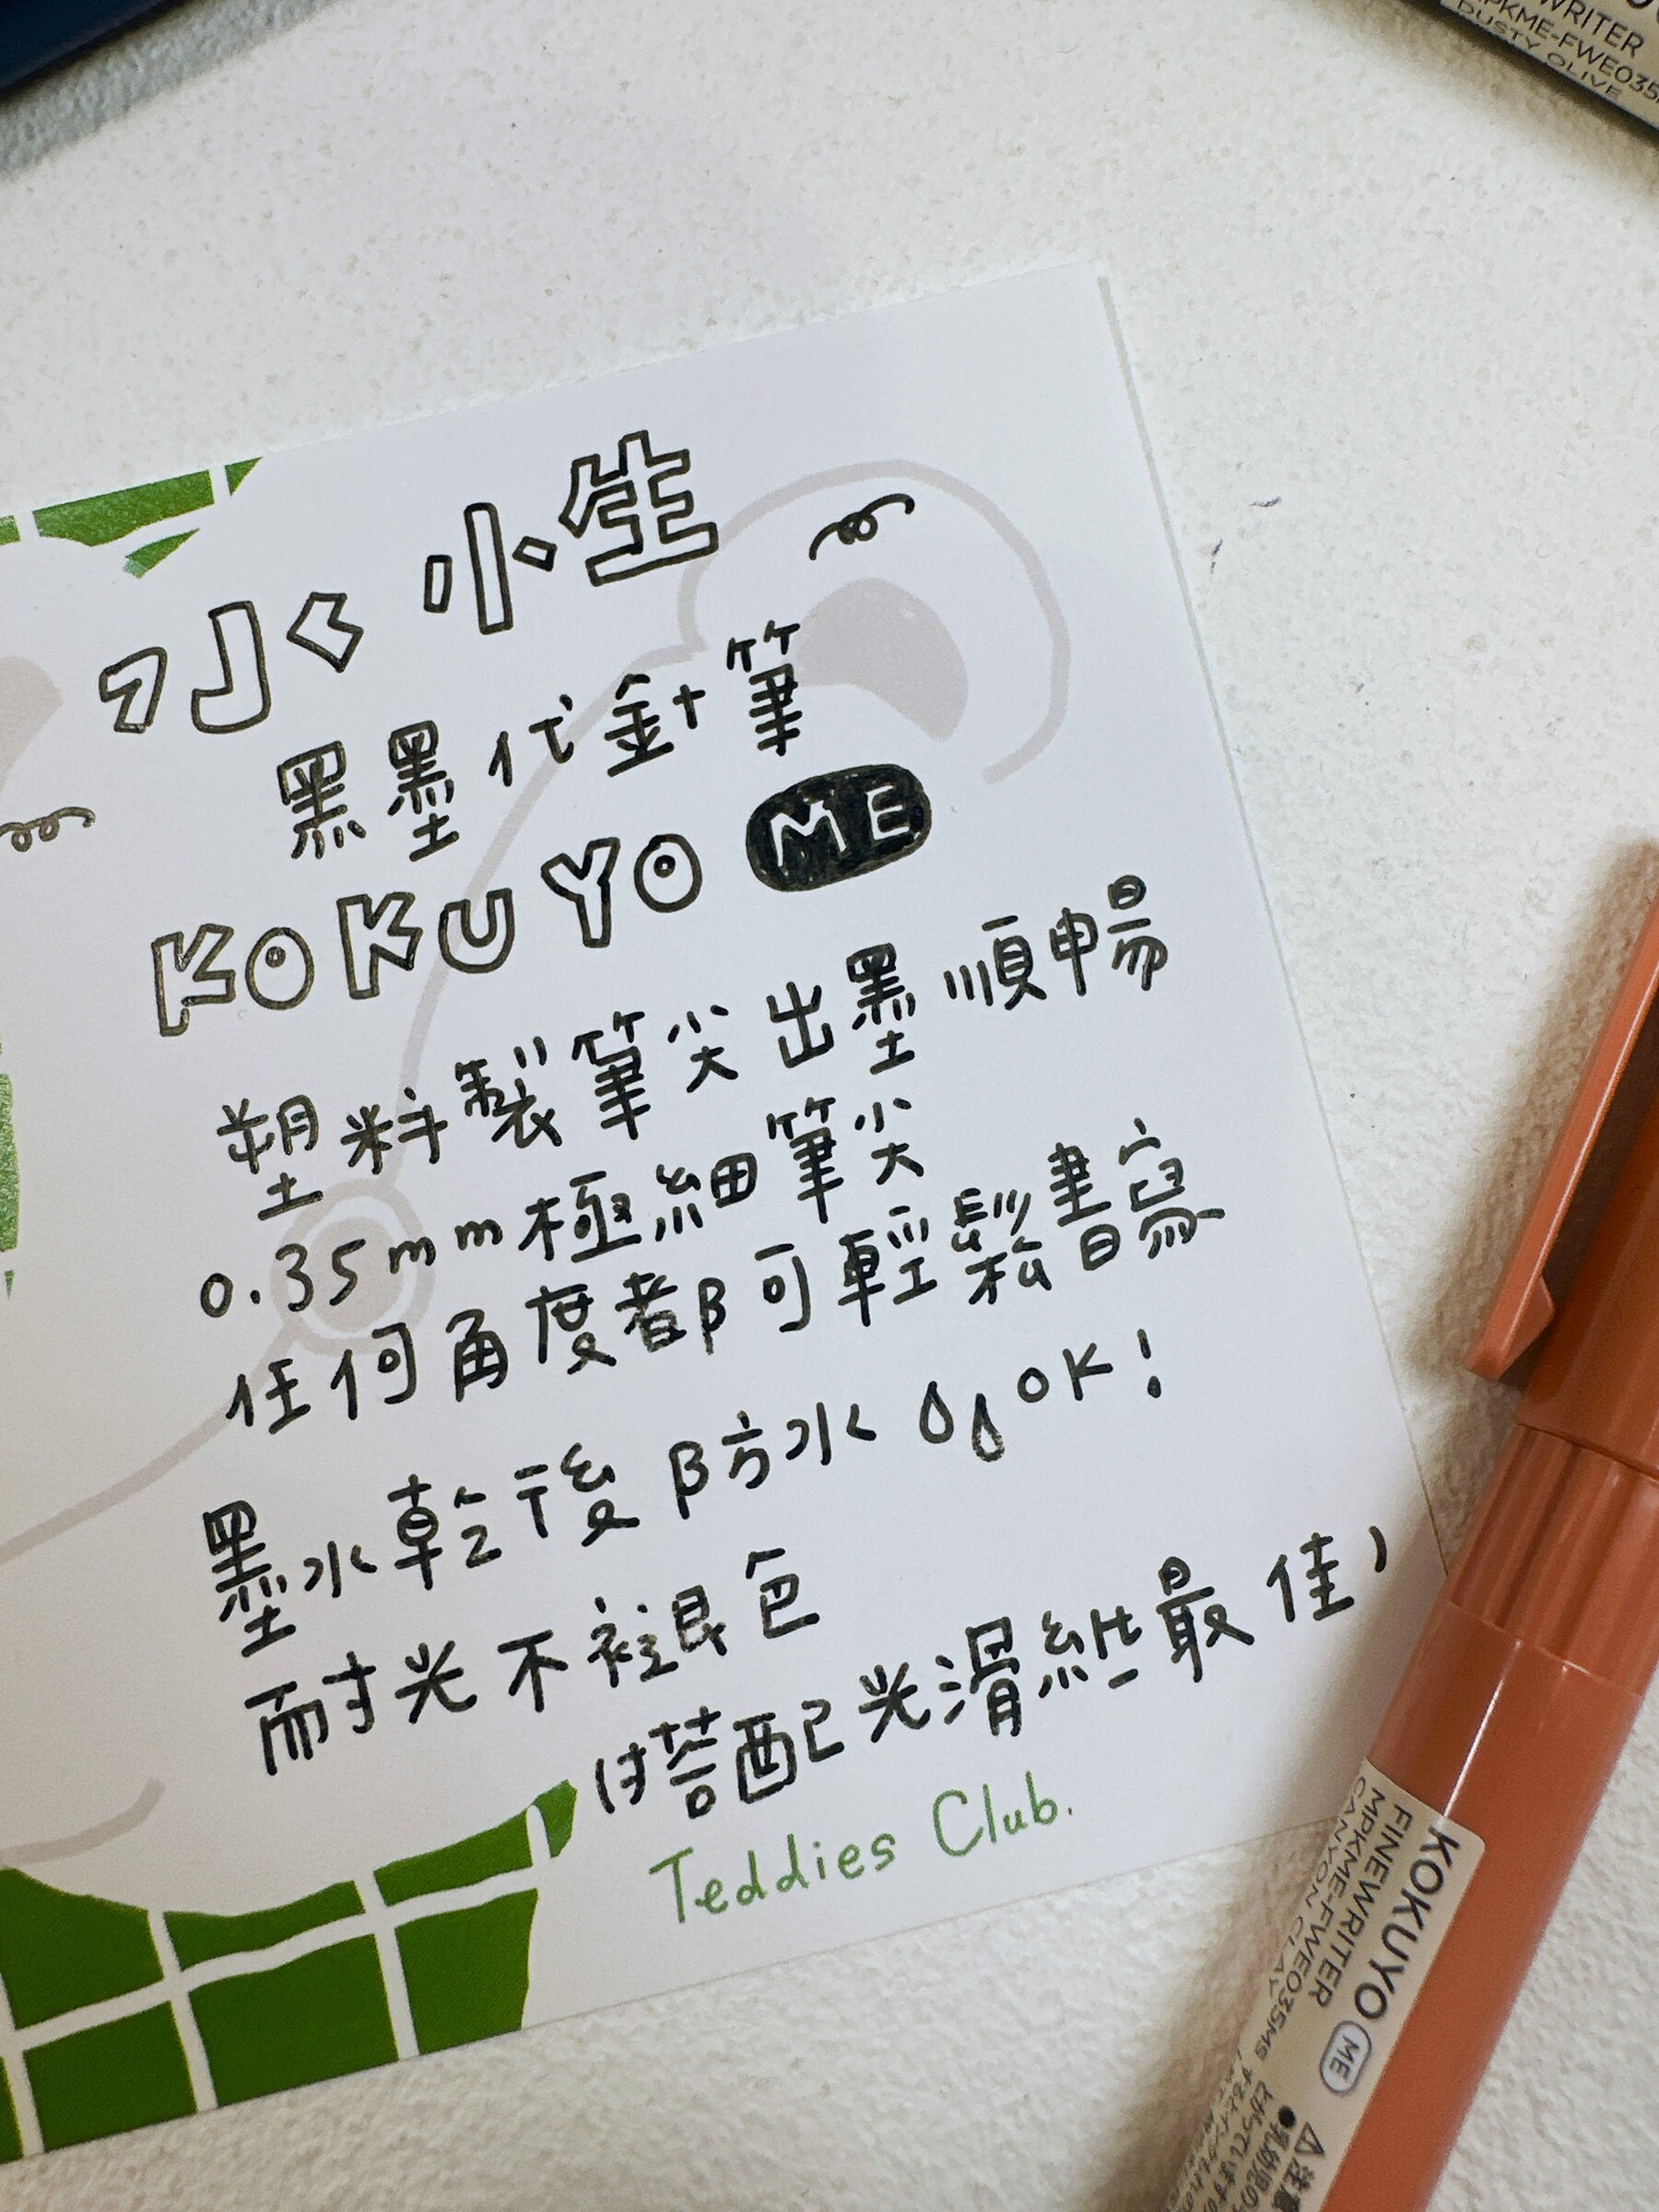 水小生
黑墨代針筆
KOKUYO ME
塑料製筆尖出墨順暢
0.35mm極細筆尖
任何角度都可輕鬆書寫
墨水乾後防水OK!
耐光不褪色
(搭配光滑紙最佳)
Teddies Club.
WRITER
MPKME-FWE035
DUSTY OLIVE
KOKUYO ME
FINEWRITER
MPKME-FWE035MS
CANYON CLAY